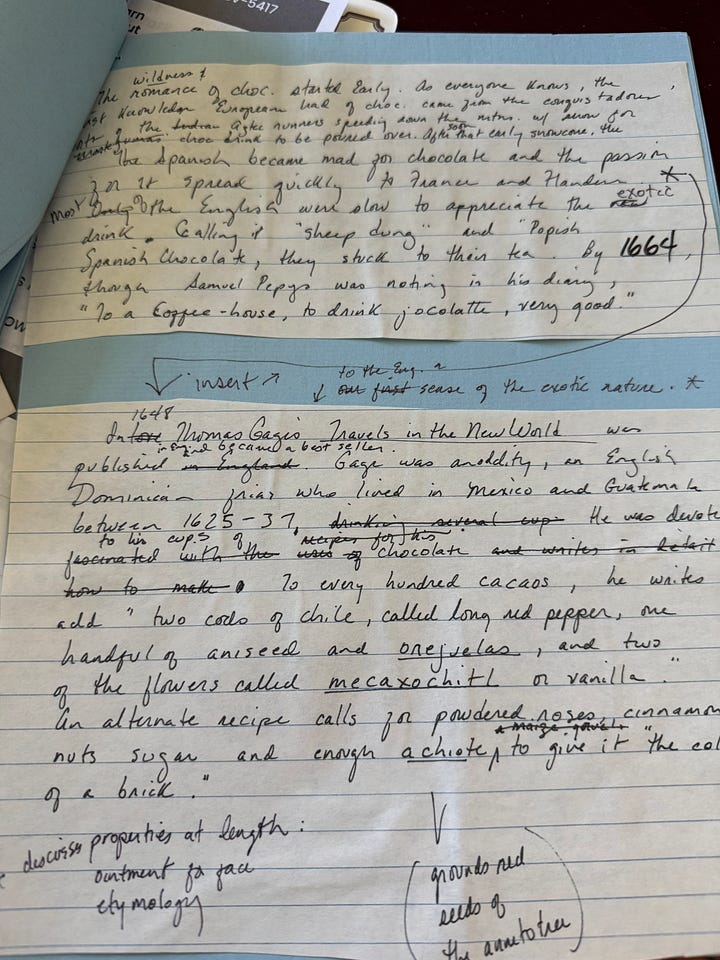 -5417
wildness &
The romance of choc. started early. As everyone knows, the
Knowledge Europeans had of choc. came from the conquistadores,
of the Indian Aztec runners speeding down the mtns. w/ snow for
choc drink to be poured over. After that early snowcone, the
soon
the Spanish became mad for chocolate and the passion
for it spread quickly to France and Flanders. *
most Only of the English were slow to appreciate the new exotic
drink. Calling it "sheep dung" and "Popish
Spanish Chocolate, they stuck to their tea. By 1664,
though Samuel Pepys was noting in his diary,
"To a Coffee-house, to drink jocolatte, very good."
insert
to the Eng. a
our first sense of the exotic nature. *
1648
In Thomas Gage's Travels in the New World was
and became a best seller.
published in England. Gage was an oddity, an English
Dominican friar who lived in Mexico and Guatemala
between 1625-37, drinking several cups He was devote
to his cups of recipes for his
fascinated with the uses of chocolate and writes in detail
how to make. To every hundred cacaos, he writes
add "two cods of chile, called long red pepper, one
handful of aniseed and orejuelas, and two
of the flowers called mecaxochitl or vanilla."
An alternate recipe calls for powdered roses, cinnamon
nuts sugar and enough achiote, to give it "the col
of a brick."
discuss properties at length:
ointment for face
etymology
grounds red
seeds of
the annatto tree